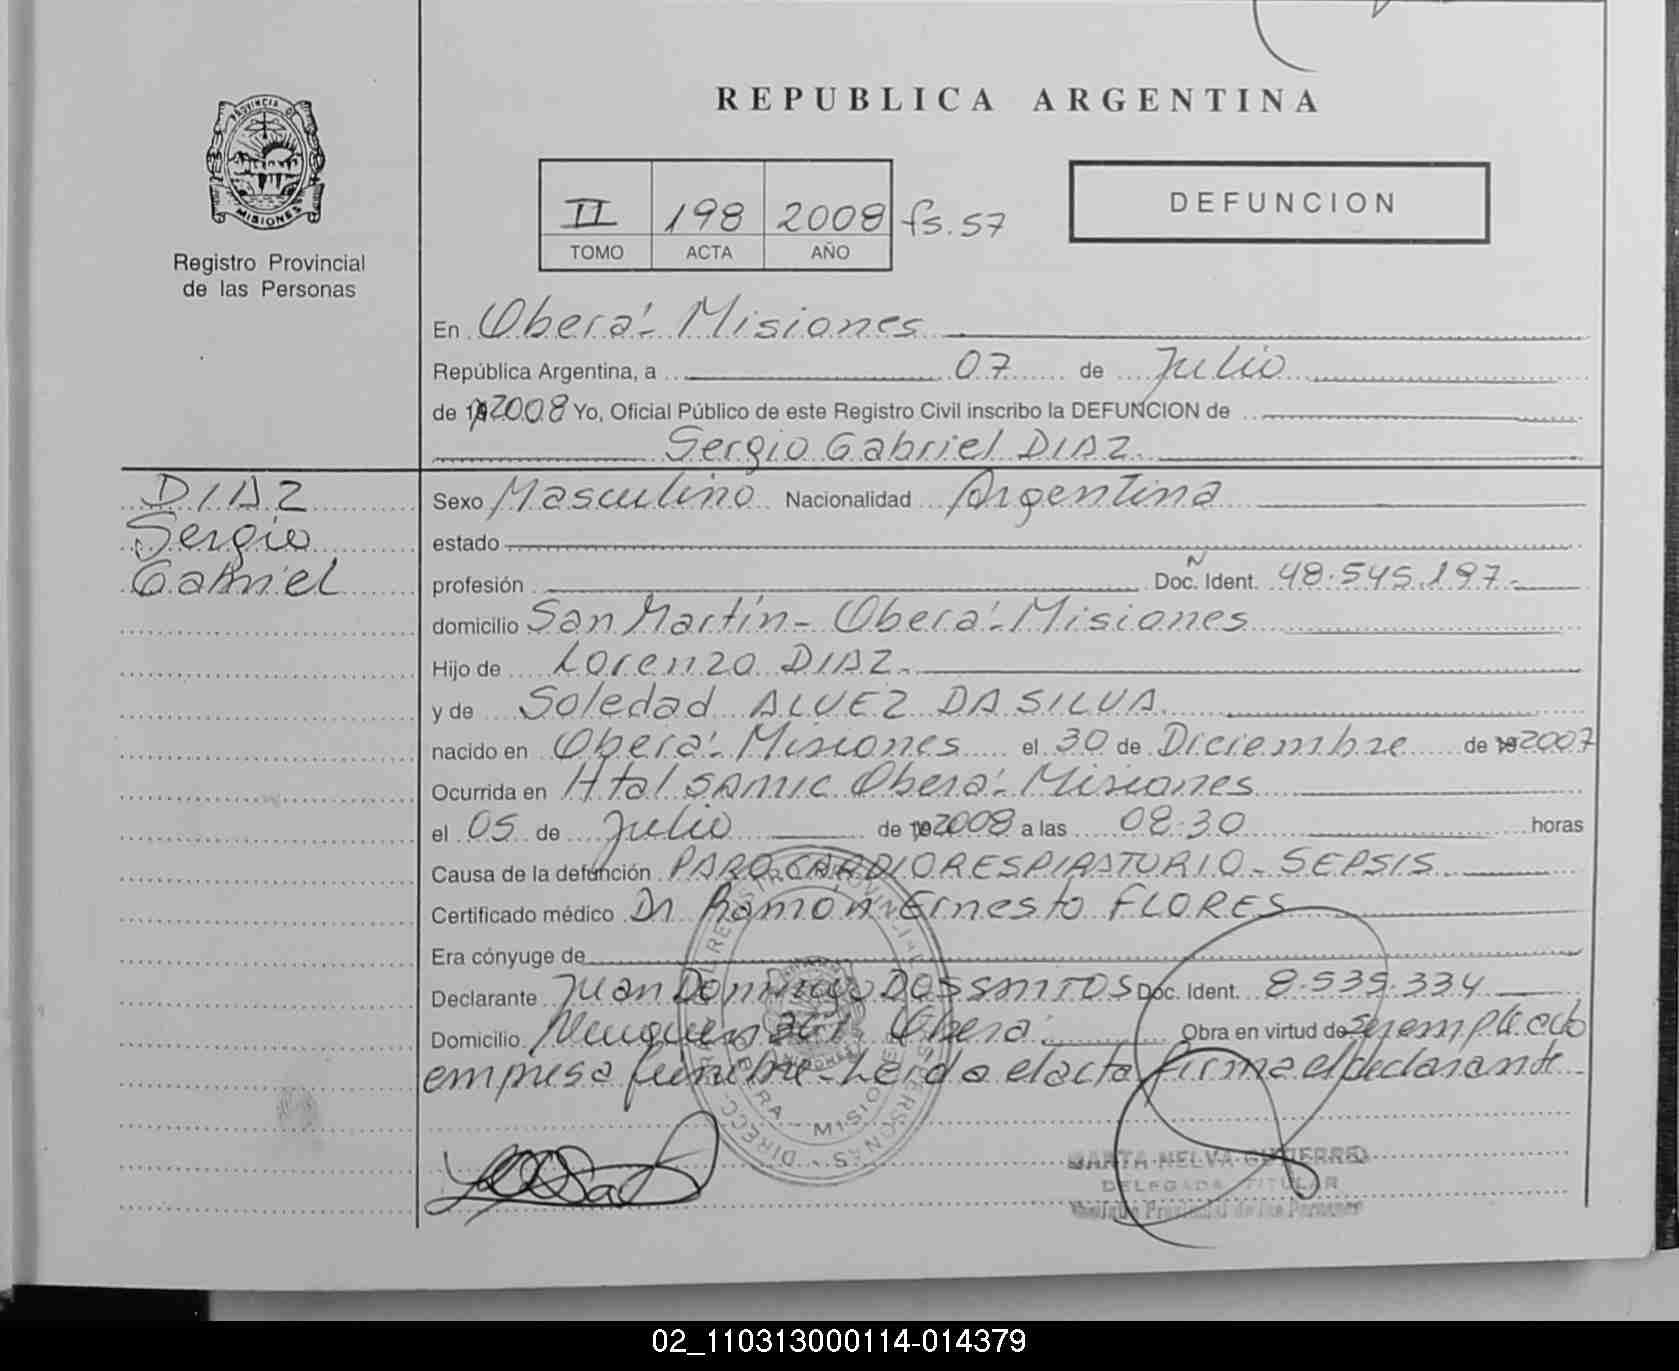 REPUBLICA ARGENTINA
PROVINCIA D
MISIONES
Registro Provincial
de las Personas
II 198 2008 fs. 57
TOMO ACTA AÑO
DEFUNCION
En Oberá - Misiones
República Argentina, a 07 de Julio
de 19 2008 Yo, Oficial Público de este Registro Civil inscribo la DEFUNCION de
Sergio Gabriel DIAZ
DIAZ
Sergio
Gabriel
Sexo Masculino Nacionalidad Argentina
estado
profesión Doc. Ident. Nº 48.545.197.-
domicilio San Martín - Oberá - Misiones
Hijo de Lorenzo DIAZ.
y de Soledad ALVEZ DA SILVA
nacido en Oberá - Misiones el 30 de Diciembre de 19 2007
Ocurrida en Htal SAMIC Oberá - Misiones
el 05 de Julio de 19 2008 a las 08:30 horas
Causa de la defunción PARO CARDIORESPIRATORIO - SEPSIS
Certificado médico Dr Ramón Ernesto FLORES
Era cónyuge de
Declarante Juan Domingo DOS SANTOS Doc. Ident. 8.535.334
Domicilio Neuquén Oberá Obra en virtud de ser empleado
empresa fúnebre - Leída el acta firma el declarante
MARTA NELVA GUTIERREZ
DELEGADA TITULAR
Registro Provincial de las Personas
02_110313000114-014379